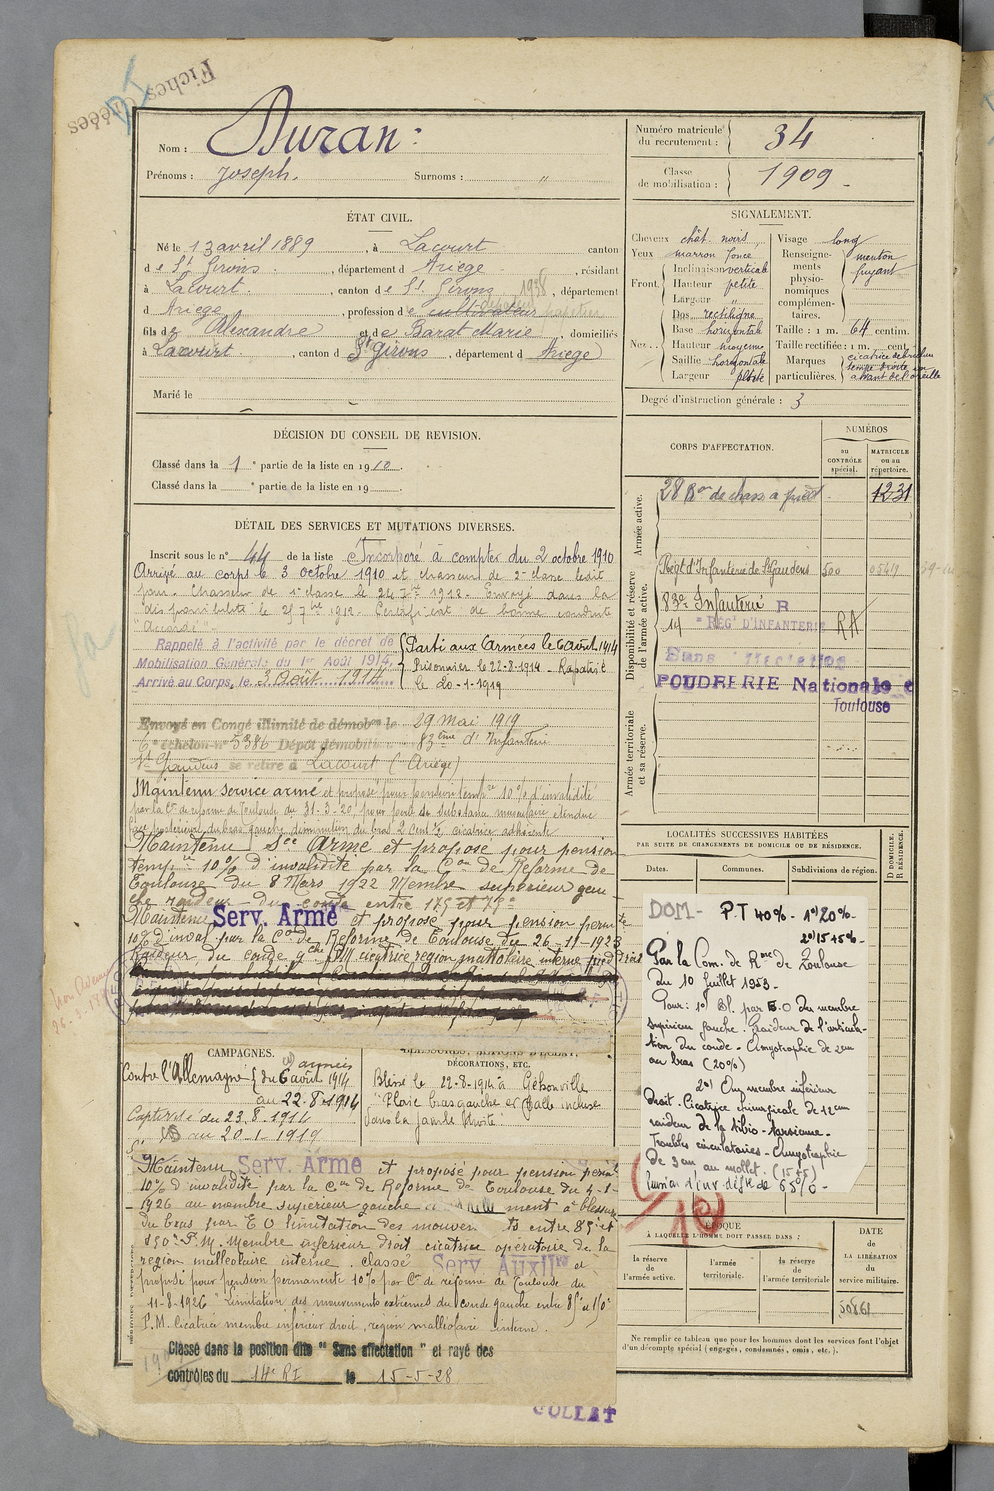 Fiches Créées
Nom : Duran
Prénoms : Joseph. Surnoms : "
Numéro matricule du recrutement : 34
Classe de mobilisation : 1909
ÉTAT CIVIL.
Né le 13 avril 1889, à Lacourt canton
de St Girons, département d Ariège, résidant
à Lacourt, canton de St Girons 1938, département
d Ariège, profession de cultivateur papetier
fils de Alexandre et de Barat Marie, domiciliés
à Lacourt, canton d St Girons, département d Ariège
Marié le
SIGNALEMENT.
Cheveux chât. noirs
Yeux marron foncé
Front. Inclinaison verticale
Hauteur petite
Largeur "
Nez Dos rectiligne
Base horizontale
Hauteur moyenne
Saillie horizontale
Largeur petite
Visage long
Renseignements physionomiques complémentaires. menton fuyant
Taille : 1 m. 64 centim.
Taille rectifiée : 1 m. cent.
Marques particulières. cicatrice tempe droite en avant de l'oreille
Degré d'instruction générale : 3
DÉCISION DU CONSEIL DE REVISION.
Classé dans la 1e partie de la liste en 1910.
Classé dans la e partie de la liste en 19
CORPS D'AFFECTATION.
NUMÉROS
au CONTRÔLE spécial.
MATRICULE ou au répertoire.
Armée active.
28 Bon de chass à pied 1231
Disponibilité et réserve de l'armée active.
Régt d'Infanterie de St Gaudens 500
83e Infanterie R
14 REG' D'INFANTERIE RA
Sans affectation
POUDRERIE Nationale
Toulouse
Armée territoriale et sa réserve.
DÉTAIL DES SERVICES ET MUTATIONS DIVERSES.
Inscrit sous le n° 44 de la liste Incorporé à compter du 2 octobre 1910
Arrivé au corps le 3 octobre 1910 et chasseur de 2e classe ledit
jour. Chasseur de 1e classe le 24 1912. Envoyé dans la
disponibilité le 27 7bre 1912. Certificat de bonne conduite
"Accordé"
Rappelé à l'activité par le décret de
Mobilisation Générale du 1er Août 1914.
Arrivé au Corps, le 3 Août 1914
Parti aux Armées le 6 août 1914
Prisonnier le 22-8-1914 Rapatrié
le 20-1-1919
Envoyé en Congé illimité de démobon le 29 Mai 1919
6e échelon n° 5386 Dépôt démobilis 83ème d'Infanterie
St Gaudens se retire à Lacourt (Ariège)
Maintenu service armé et proposé pour pension tempre 10% d'invalidité
par la Con de réforme de Toulouse du 31-3-20 pour perte de substance musculaire étendue
face postérieure du bras gauche, diminution du bras 2 cent ½ cicatrice adhérente
Maintenu Sce Armé et proposé pour pension
tempre 10% d'invalidité par la Con de Réforme de
Toulouse du 8 Mars 1922 Membre supérieur gau
che raideur du coude entre 175° et 75°
Maintenu Serv. Armé et proposé pour pension permte
10% d'inval par la Con de Réforme de Toulouse du 26-11-1923
Raideur du coude gche P.M. cicatrice région malléolaire interne pied droit
LOCALITÉS SUCCESSIVES HABITÉES
PAR SUITE DE CHANGEMENTS DE DOMICILE OU DE RÉSIDENCE.
Dates. Communes. Subdivisions de région.
D DOMICILE. R RÉSIDENCE.
DOM - P.T 40% - 1°) 20% -
2°) 15 + 5% -
Par la Com. de Rme de Toulouse
du 10 Juillet 1953 -
Pour : 1°) Bl. par E.O du membre
supérieur gauche. Raideur de l'articula-
tion du coude - Amyotrophie de 2 cm
au bras (20%)
2°) Au membre inférieur
droit. Cicatrice chirurgicale de 12 cm
raideur de la tibio-tarsienne -
Troubles circulatoires - Amyotrophie
de 3 cm au mollet. (15+5)
de 65% -
10
CAMPAGNES.
Contre l'Allemagne (aux armées)
du 6 août 1914
au 22.8.1914
Captivité du 23.8.1914
au 20-1-1919
BLESSURES, ACTIONS D'ÉCLAT, DÉCORATIONS, ETC.
Blessé le 22-8-1914 à
"Plaie bras gauche et balle incluse
dans la jambe droite"
Maintenu Serv. Armé et proposé pour pension permte
10% d'invalidité par la Con de Réforme de Toulouse du
1926 au membre supérieur gauche
du bras par E O limitation des mouvements entre 85° et
150° P.M. Membre inférieur droit cicatrice opératoire de la
région malléolaire interne. classé Serv. Auxilre et
proposé pour pension permanente 10% par Con de réforme de Toulouse du
11-8-1926 "Limitation des mouvements extrêmes du coude gauche entre 85° et 150°
P.M. Cicatrice membre inférieur droit, région malléolaire interne.
Classé dans la position dite "Sans affectation" et rayé des
contrôles du 14e RI le 15-5-28
COLLAT
ÉPOQUE
À LAQUELLE L'HOMME DOIT PASSER DANS :
la réserve de l'armée active.
l'armée territoriale.
la réserve de l'armée territoriale
DATE de LA LIBÉRATION du service militaire.
Ne remplir ce tableau que pour les hommes dont les services font l'objet
d'un décompte spécial (engagés, condamnés, omis, etc.).